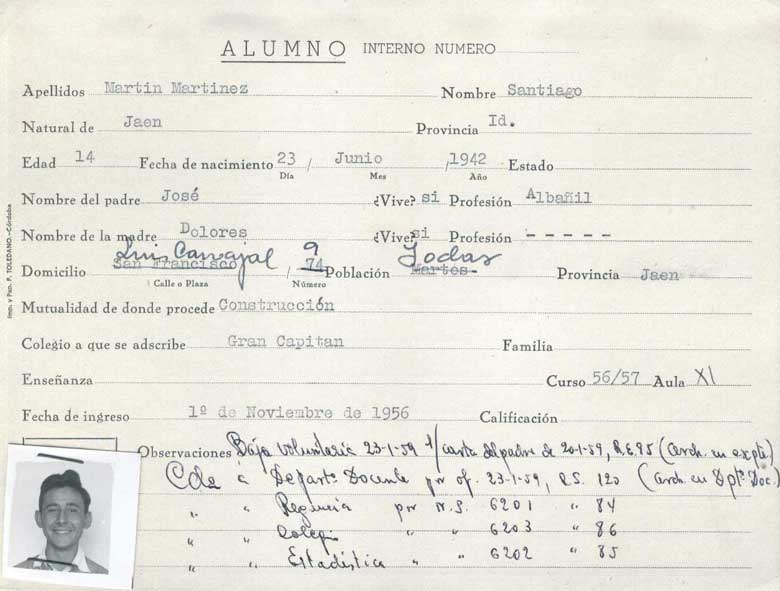 ALUMNO INTERNO NUMERO
Apellidos Martin Martinez Nombre Santiago
Natural de Jaen Provincia Id.
Edad 14 Fecha de nacimiento 23 / Junio / 1942 Estado
Día Mes Año
Nombre del padre José ¿Vive? si Profesión Albañil
Nombre de la madre Dolores ¿Vive? si Profesión - - - - -
Luis Carvajal 9
Domicilio San Francisco / 74 Población Martos Provincia Jaen
Calle o Plaza Número
Mutualidad de donde procede Construcción
Colegio a que se adscribe Gran Capitan Familia
Enseñanza Curso 56/57 Aula XI
Fecha de ingreso 1º de Noviembre de 1956 Calificación
Observaciones Baja voluntaria 23-1-59 s/ carta del padre de 20-1-59, R.E. 95 (arch. en expte.)
Cda a Departº Docente por of. 23-1-59, R.S. 120 (arch. en Dptº Doc.)
" " Regencia por N.S. 6201 " 84
" " Colegio " " 6203 " 86
" " Estadística " " 6202 " 85
Imp. y Pap. F. TOLEDANO.-Córdoba